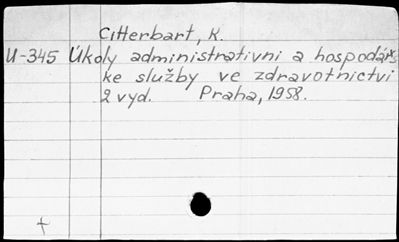 Citterbart, K.
U-345 Úkoly administrativni a hospodářs
ke služby ve zdravotnictvi
2 vyd. Praha, 1958.